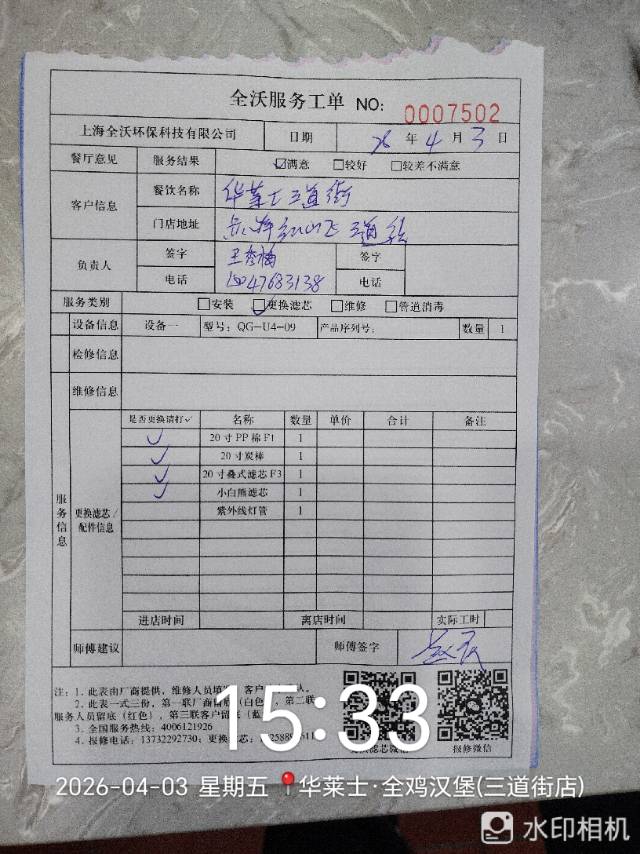 全沃服务工单 NO: 0007502
上海全沃环保科技有限公司 日期 26 年 4 月 3 日
餐厅意见 服务结果 ☑满意 □较好 □较差不满意
客户信息 餐饮名称 华莱士三道街
门店地址 三道街
负责人 签字 签字
电话 15047683138 电话
服务类别 □安装 ☑更换滤芯 □维修 □管道消毒
设备信息 设备一 型号: QG-U4-09 产品序列号: 数量 1
检修信息
维修信息
服务信息
更换滤芯/配件信息
是否更换请打✓ 名称 数量 单价 合计 备注
✓ 20寸PP棉F1 1
✓ 20寸炭棒 1
✓ 20寸叠式滤芯F3 1
✓ 小白熊滤芯 1
紫外线灯管 1
进店时间 离店时间 实际工时
师傅建议 师傅签字
注: 1. 此表由厂商提供, 维修人员填
2. 此表一式三份, 第一联厂商留底(白色), 第二联
服务人员留底(红色), 第三联客户留底(蓝
3. 全国服务热线: 4006121926
4. 报修电话: 13732292730; 更换滤芯:
更换滤芯微信 报修微信
15:33
2026-04-03 星期五 华莱士·全鸡汉堡(三道街店)
水印相机